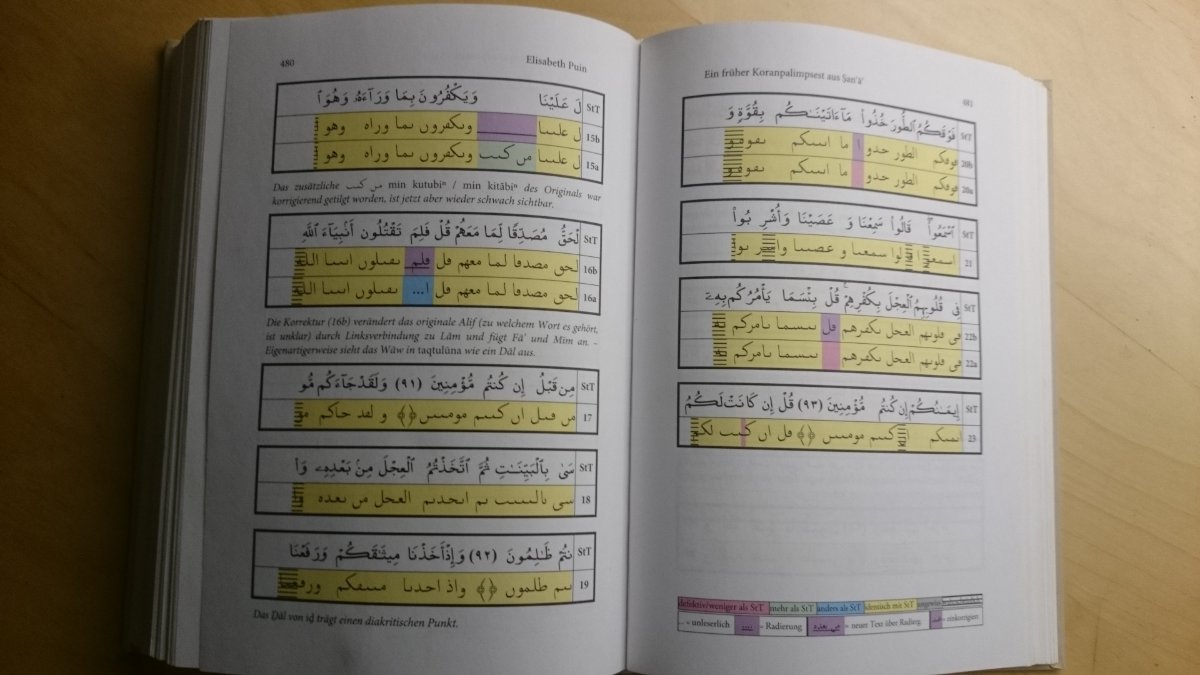 480
Elisabeth Puin
StT ل عَلَيْنَا وَيَكْفُرُونَ بِمَا وَرَآءَهُۥ وَهُوَ ٱ
15b ل علىىا وىكفرون ىما وراه وهو
15a ل علىىا من كىىب وىكفرون ىما وراه وهو
Das zusätzliche من كىب min kutubiⁿ / min kitābiⁿ des Originals war
korrigierend getilgt worden, ist jetzt aber wieder schwach sichtbar.
StT لْحَقُّ مُصَدِّقًا لِمَا مَعَهُمْ قُلْ فَلِمَ تَقْتُلُونَ أَنۢبِيَآءَ ٱللَّهِ
16b لحق مصدفا لما معهم فل فلم ىفىلون اىىىا الله
16a لحق مصدفا لما معهم فل ا... ىفىلون اىىىا الله
Die Korrektur (16b) verändert das originale Alif (zu welchem Wort es gehört,
ist unklar) durch Linksverbindung zu Lām und fügt Fāʾ und Mīm an. –
Eigenartigerweise sieht das Wāw in taqtulūna wie ein Dāl aus.
StT مِن قَبْلُ إِن كُنتُم مُّؤْمِنِينَ (٩١) وَلَقَدْ جَآءَكُم مُّو
17 من فىل ان كىىم مومىىں ﴿﴾ و لفد حاكم مو
StT سَىٰ بِٱلْبَيِّنَـٰتِ ثُمَّ ٱتَّخَذْتُمُ ٱلْعِجْلَ مِنۢ بَعْدِهِۦ وَأ
18 سى ىالىىىىىت ىم اىحدىم العحل من ىعده و
StT نتُمْ ظَـٰلِمُونَ (٩٢) وَإِذْ أَخَذْنَا مِيثَـٰقَكُمْ وَرَفَعْنَا
19 ىىم طلمون ﴿﴾ واذ احدىا مىىفكم ورفعىا
Das Ḏāl von iḏ trägt einen diakritischen Punkt.
Ein früher Koranpalimpsest aus Ṣanʿāʾ
481
StT فَوْقَكُمُ ٱلطُّورَ خُذُوا۟ مَآ ءَاتَيْنَـٰكُم بِقُوَّةٍ وَ
20b فوفكم الطور حدو ا ما اىىىكم ىفوه و
20a فوفكم الطور حدو ما اىىىكم ىفوه و
StT ٱسْمَعُوا۟ قَالُوا۟ سَمِعْنَا وَ عَصَيْنَا وَأُشْرِ بُوا۟
21 اسمعوا فالوا سمعىا و عصىىا واسر ىوا
StT فِى قُلُوبِهِمُ ٱلْعِجْلَ بِكُفْرِهِمْ قُلْ بِئْسَمَا يَأْمُرُكُم بِهِۦٓ
22b فى فلوىهم العحل ىكفرهم فل ىىسما ىامركم
22a فى فلوىهم العحل ىكفرهم ىىسما ىامركم
StT إِيمَـٰنُكُمْ إِن كُنتُم مُّؤْمِنِينَ (٩٣) قُلْ إِن كَانَتْ لَكُمُ
23 اىمىكم كىىم مومىىں ﴿﴾ فل ان كىىت لكم
defektiv/weniger als StT mehr als StT anders als StT identisch mit StT
... = unleserlich = Radierung = neuer Text über Radierg. = einkorrigiert